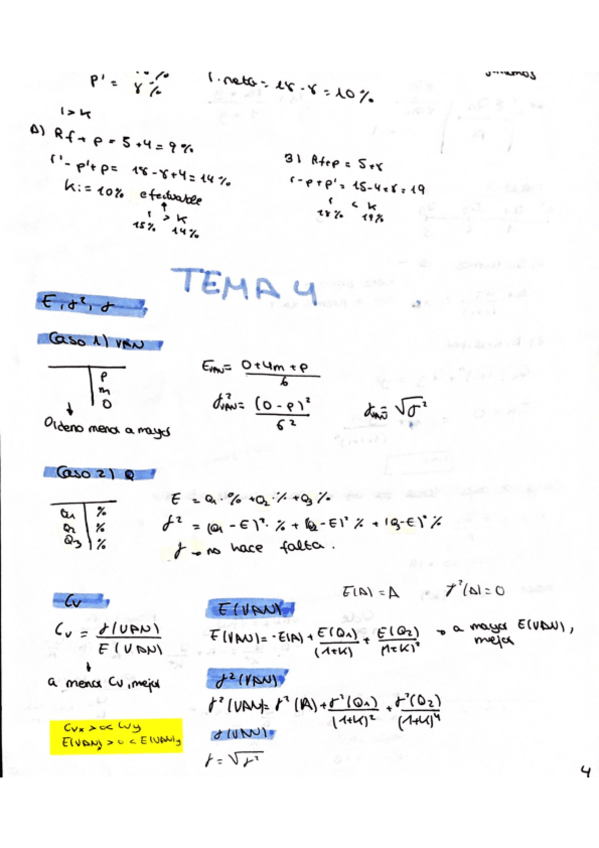 p' = 8%
r. neta = 18 - 8 = 10%
r > k
A) Rf + p = 5 + 4 = 9%
r' - p' + p = 18 - 8 + 4 = 14%
K: = 10% efectuable
r > k
18% 14%
B) Rf + p = 5 + 8
r - p + p' = 15 - 4 + 8 = 19
r < k
18% 19%
TEMA 4
E, σ², σ
Caso 1) VAN
P
m
O
Ordeno menor a mayor
E VAN = O + 4m + p / 6
σ² VAN = (O - P)² / 6²
σ VAN = √σ²
Caso 2) Q
Q1 %
Q2 %
Q3 %
E = Q1 · % + Q2 · % + Q3 %
σ² = (Q1 - E)² · % + (Q2 - E)² % + (Q3 - E)² %
σ → no hace falta.
CV
Cv = σ(VAN) / E(VAN)
a menor CV, mejor
CVx > ∝ CVy
E(VAN)x > 0 < E(VAN)y
E(A) = A σ²(A) = 0
E(VAN)
E(VAN) = -E(A) + E(Q1) / (1+K) + E(Q2) / (1+K)² → a mayor E(VAN), mejor
σ²(VAN)
σ²(VAN) = σ²(A) + σ²(Q1) / (1+K)² + σ²(Q2) / (1+K)⁴
σ(VAN)
σ = √σ²
4